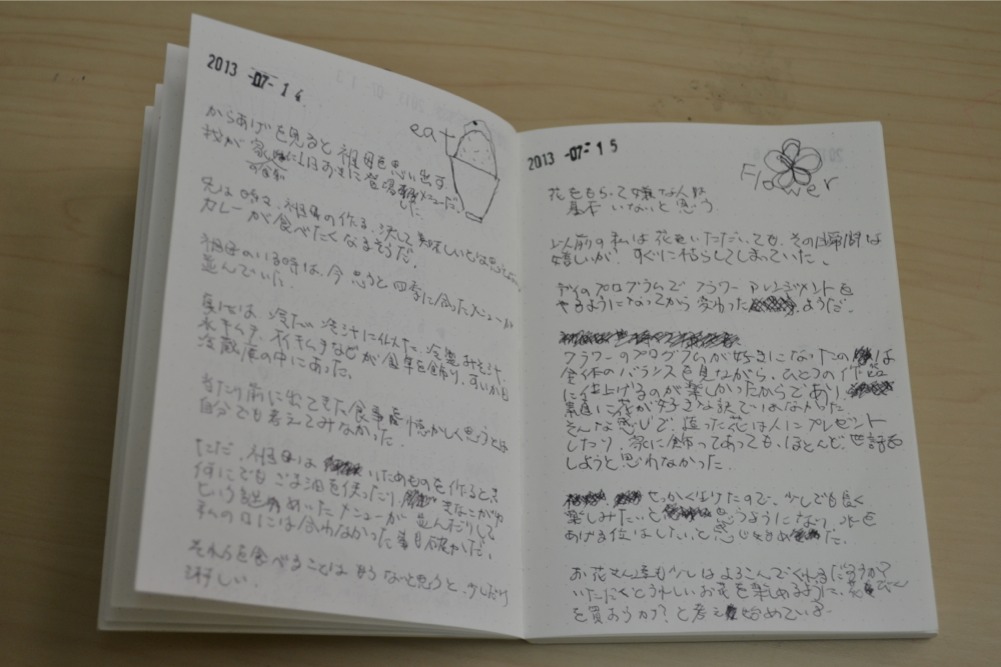 2013 -07- 14
eat
からあげを見ると祖母を思い出す。
我が家に1日おきに登場するメニューだ。
の食卓
した
兄は時々、祖母の作る、決して美味しいとは思えない
カレーが食べたくなるそうだ。
祖母のいる時は、今思うと四季に合ったメニューが
並んでいた。
夏には冷たい冷汁に似た、冷製みそ汁、
水キムチ、
などが食卓を飾り、すいかは
冷蔵庫の中にあった。
当たり前に出てきた食事を懐かしく思うとは
自分でも考えてみなかった。
ただ、祖母はいためものを作るとき
何にでもごま油を使ったり、
という
めいたメニューが並んだりして
私の口には合わなかった事も確かだ。
それらを食べることはもうないと思うと、少しだけ
淋しい。
2013 -07- 15
Flower
花をもらって嫌な人は
基本いないと思う
以前の私は花をいただいても、その瞬間は
嬉しいが、すぐに枯らしてしまっていた。
デイのプログラムでフラワーアレンジメントを
やるようになってから変わったようだ。
フラワーのプログラムが好きになったのは
全体のバランスを見ながら、ひとつの作品
に仕上げるのが楽しかったからであり
素直に花が好きな訳ではなかった。
そんな感じで、造った花は人にプレゼント
したり、家に飾ってあっても、ほとんど世話を
しようと思わなかった。
せっかく生けたので、少しでも長く
楽しみたいと思うようになり、水を
あげる位はしたいと感じ始めた。
お花さん達も少しはよろこんでくれるだろうか?
いただくとうれしいお花を楽しめるように、花びん
を買おうか?と考え始めている。